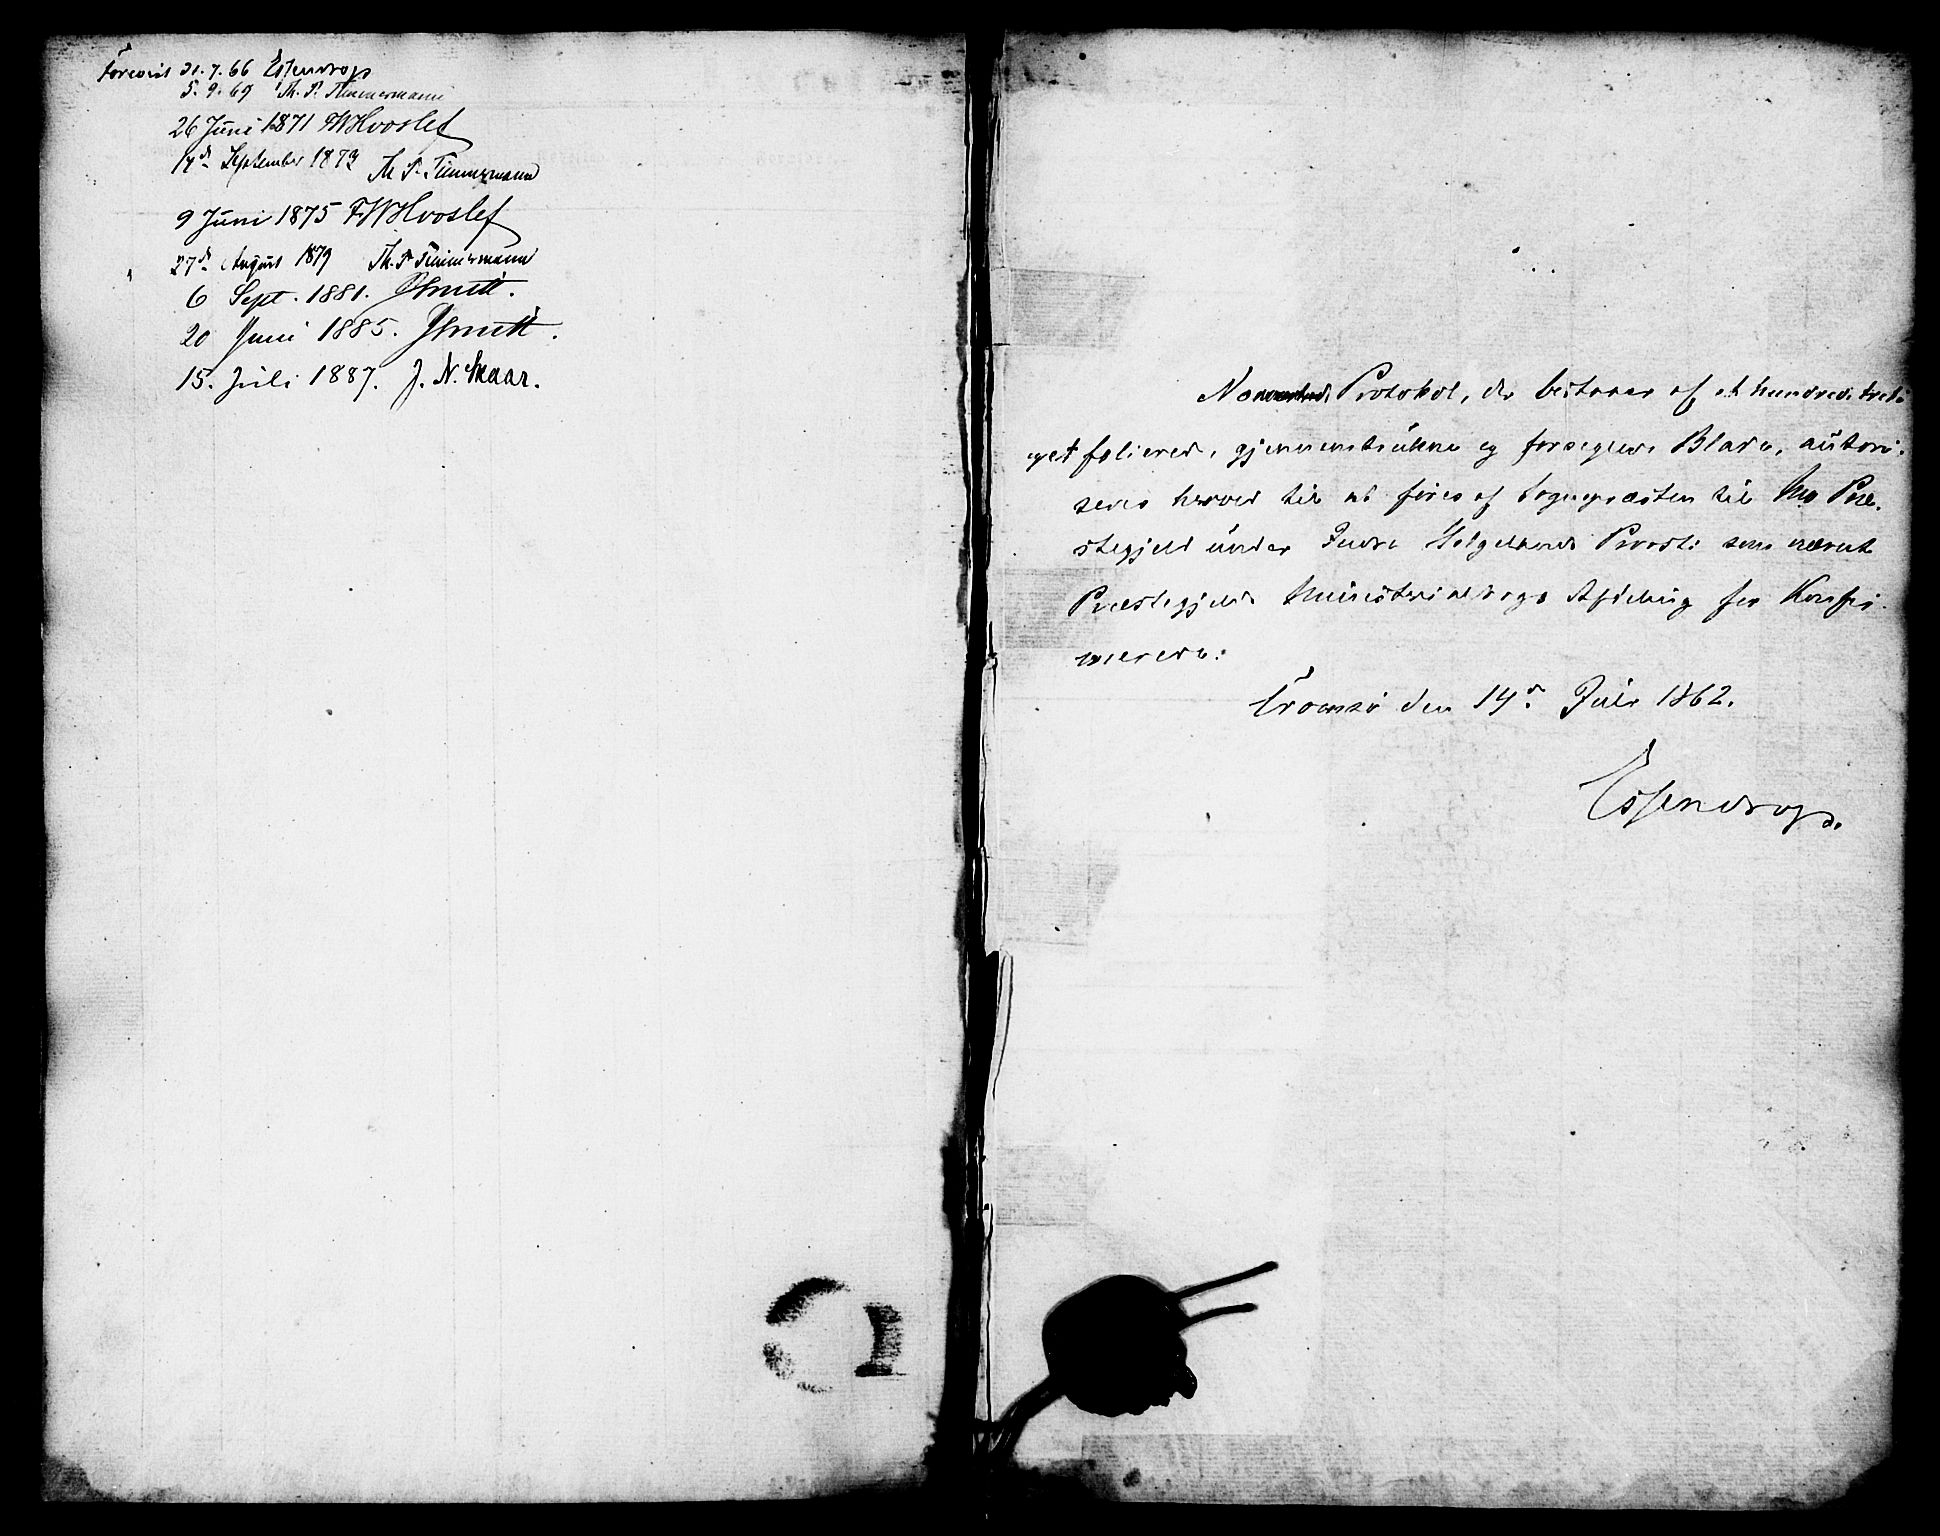 Forevist 31.7.66 Essendrop
5.9.69 Th. P. Timmermann
26 Juni 1871 FWHvoslef
17d September 1873 Th P. Timmermann
9 Juni 1875 FWHvoslef
27d August 1879 Th. P Timmermann
6 Sept. 1881. JSmitt.
20 Juni 1885. JSmitt.
15. Juli 1887. J. N. Skaar.
Protokol, der bestaaer af et hundrede treti
get folierede, gjennemtrukne og forseglede Blade, autori-
seres herved til at føres af Sognepræsten til Mo Præ-
stegjeld under Indre Helgelands Provsti som nævnt
Præstegjelds Ministerialbogs Afdeling for Konfir-
merede.
Tromsø den 14de Juli 1862.
Essendrop.